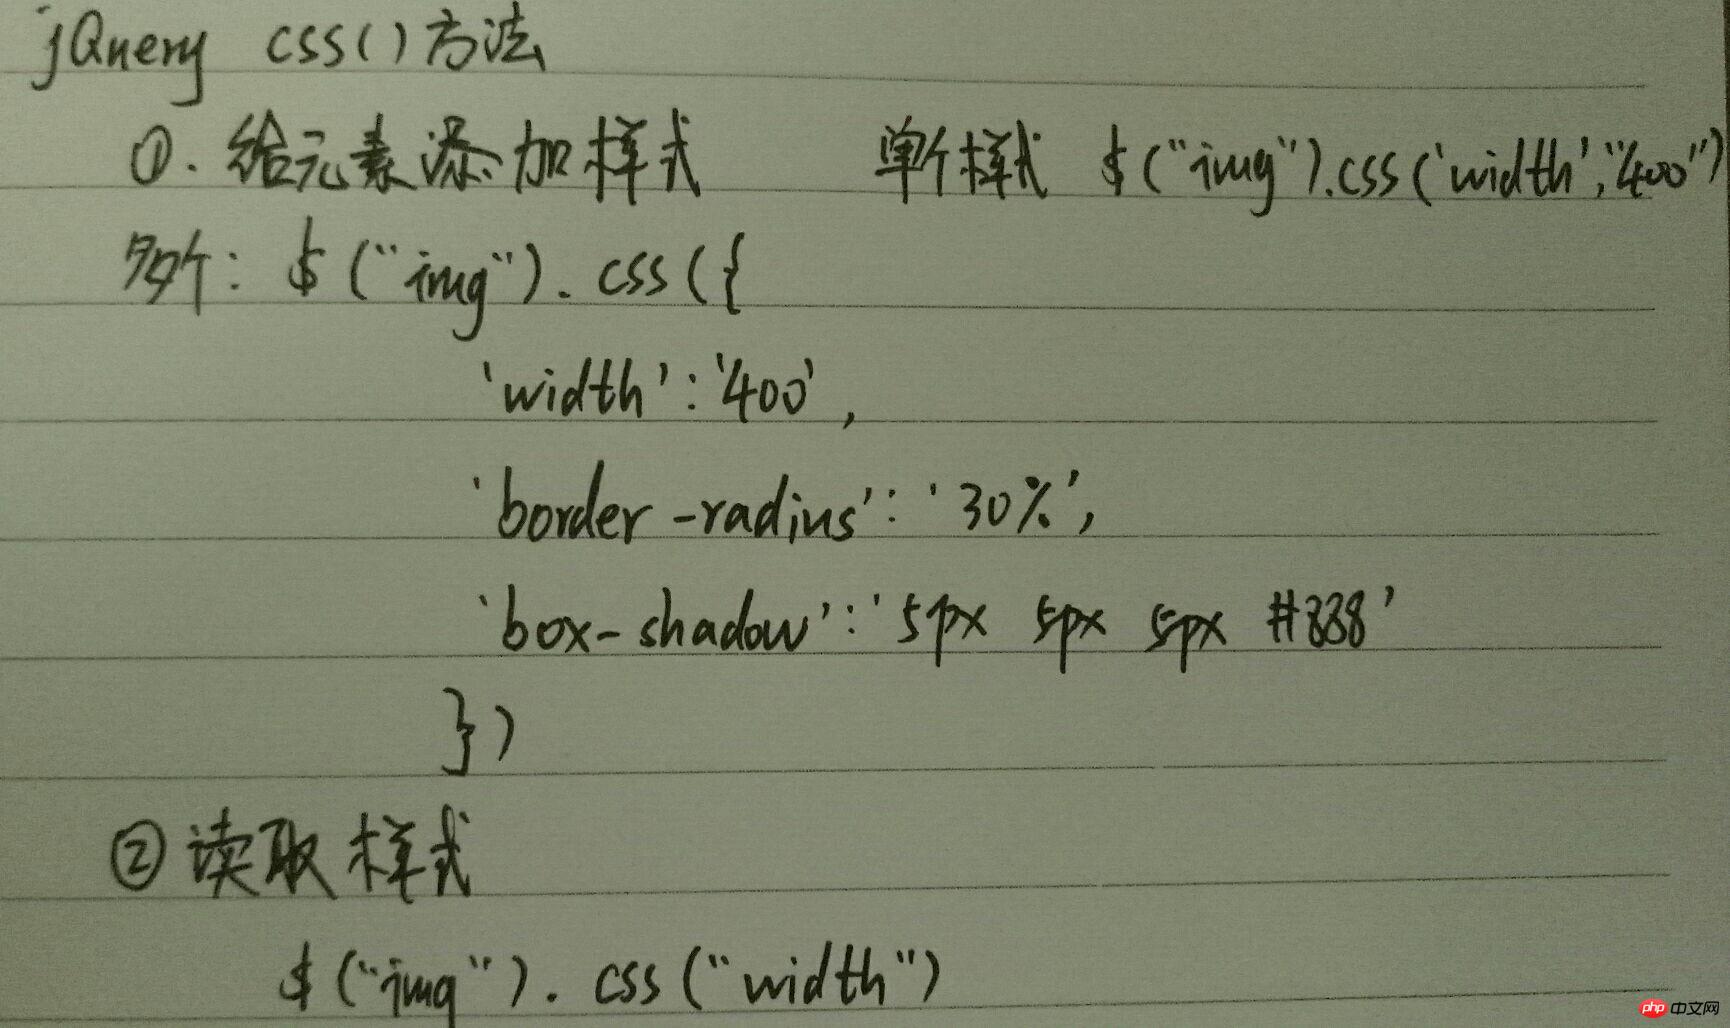 jQuery css()方法
①. 给元素添加样式 单个样式 $("img").css('width',"400")
多个: $("img").css({
'width':'400',
'border-radius':'30%',
'box-shadow':'5px 5px 5px #888'
})
②读取样式
$("img").css("width")
php 中文网